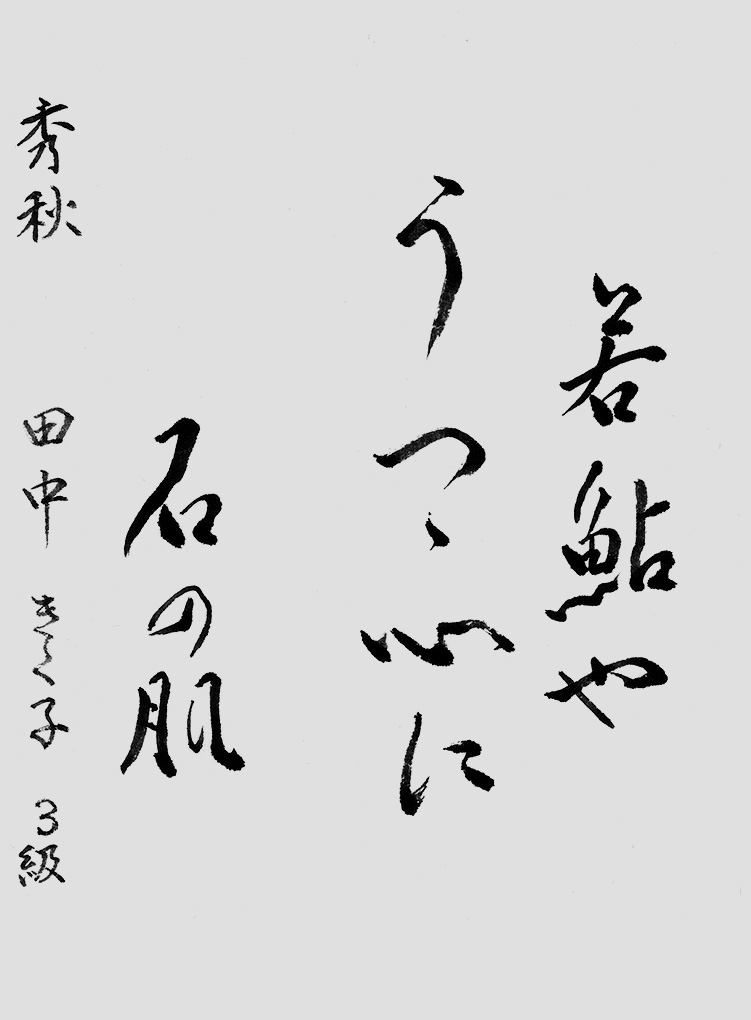 若鮎や
うつゝ心に
石の肌
秀秋 田中 きく子 3級